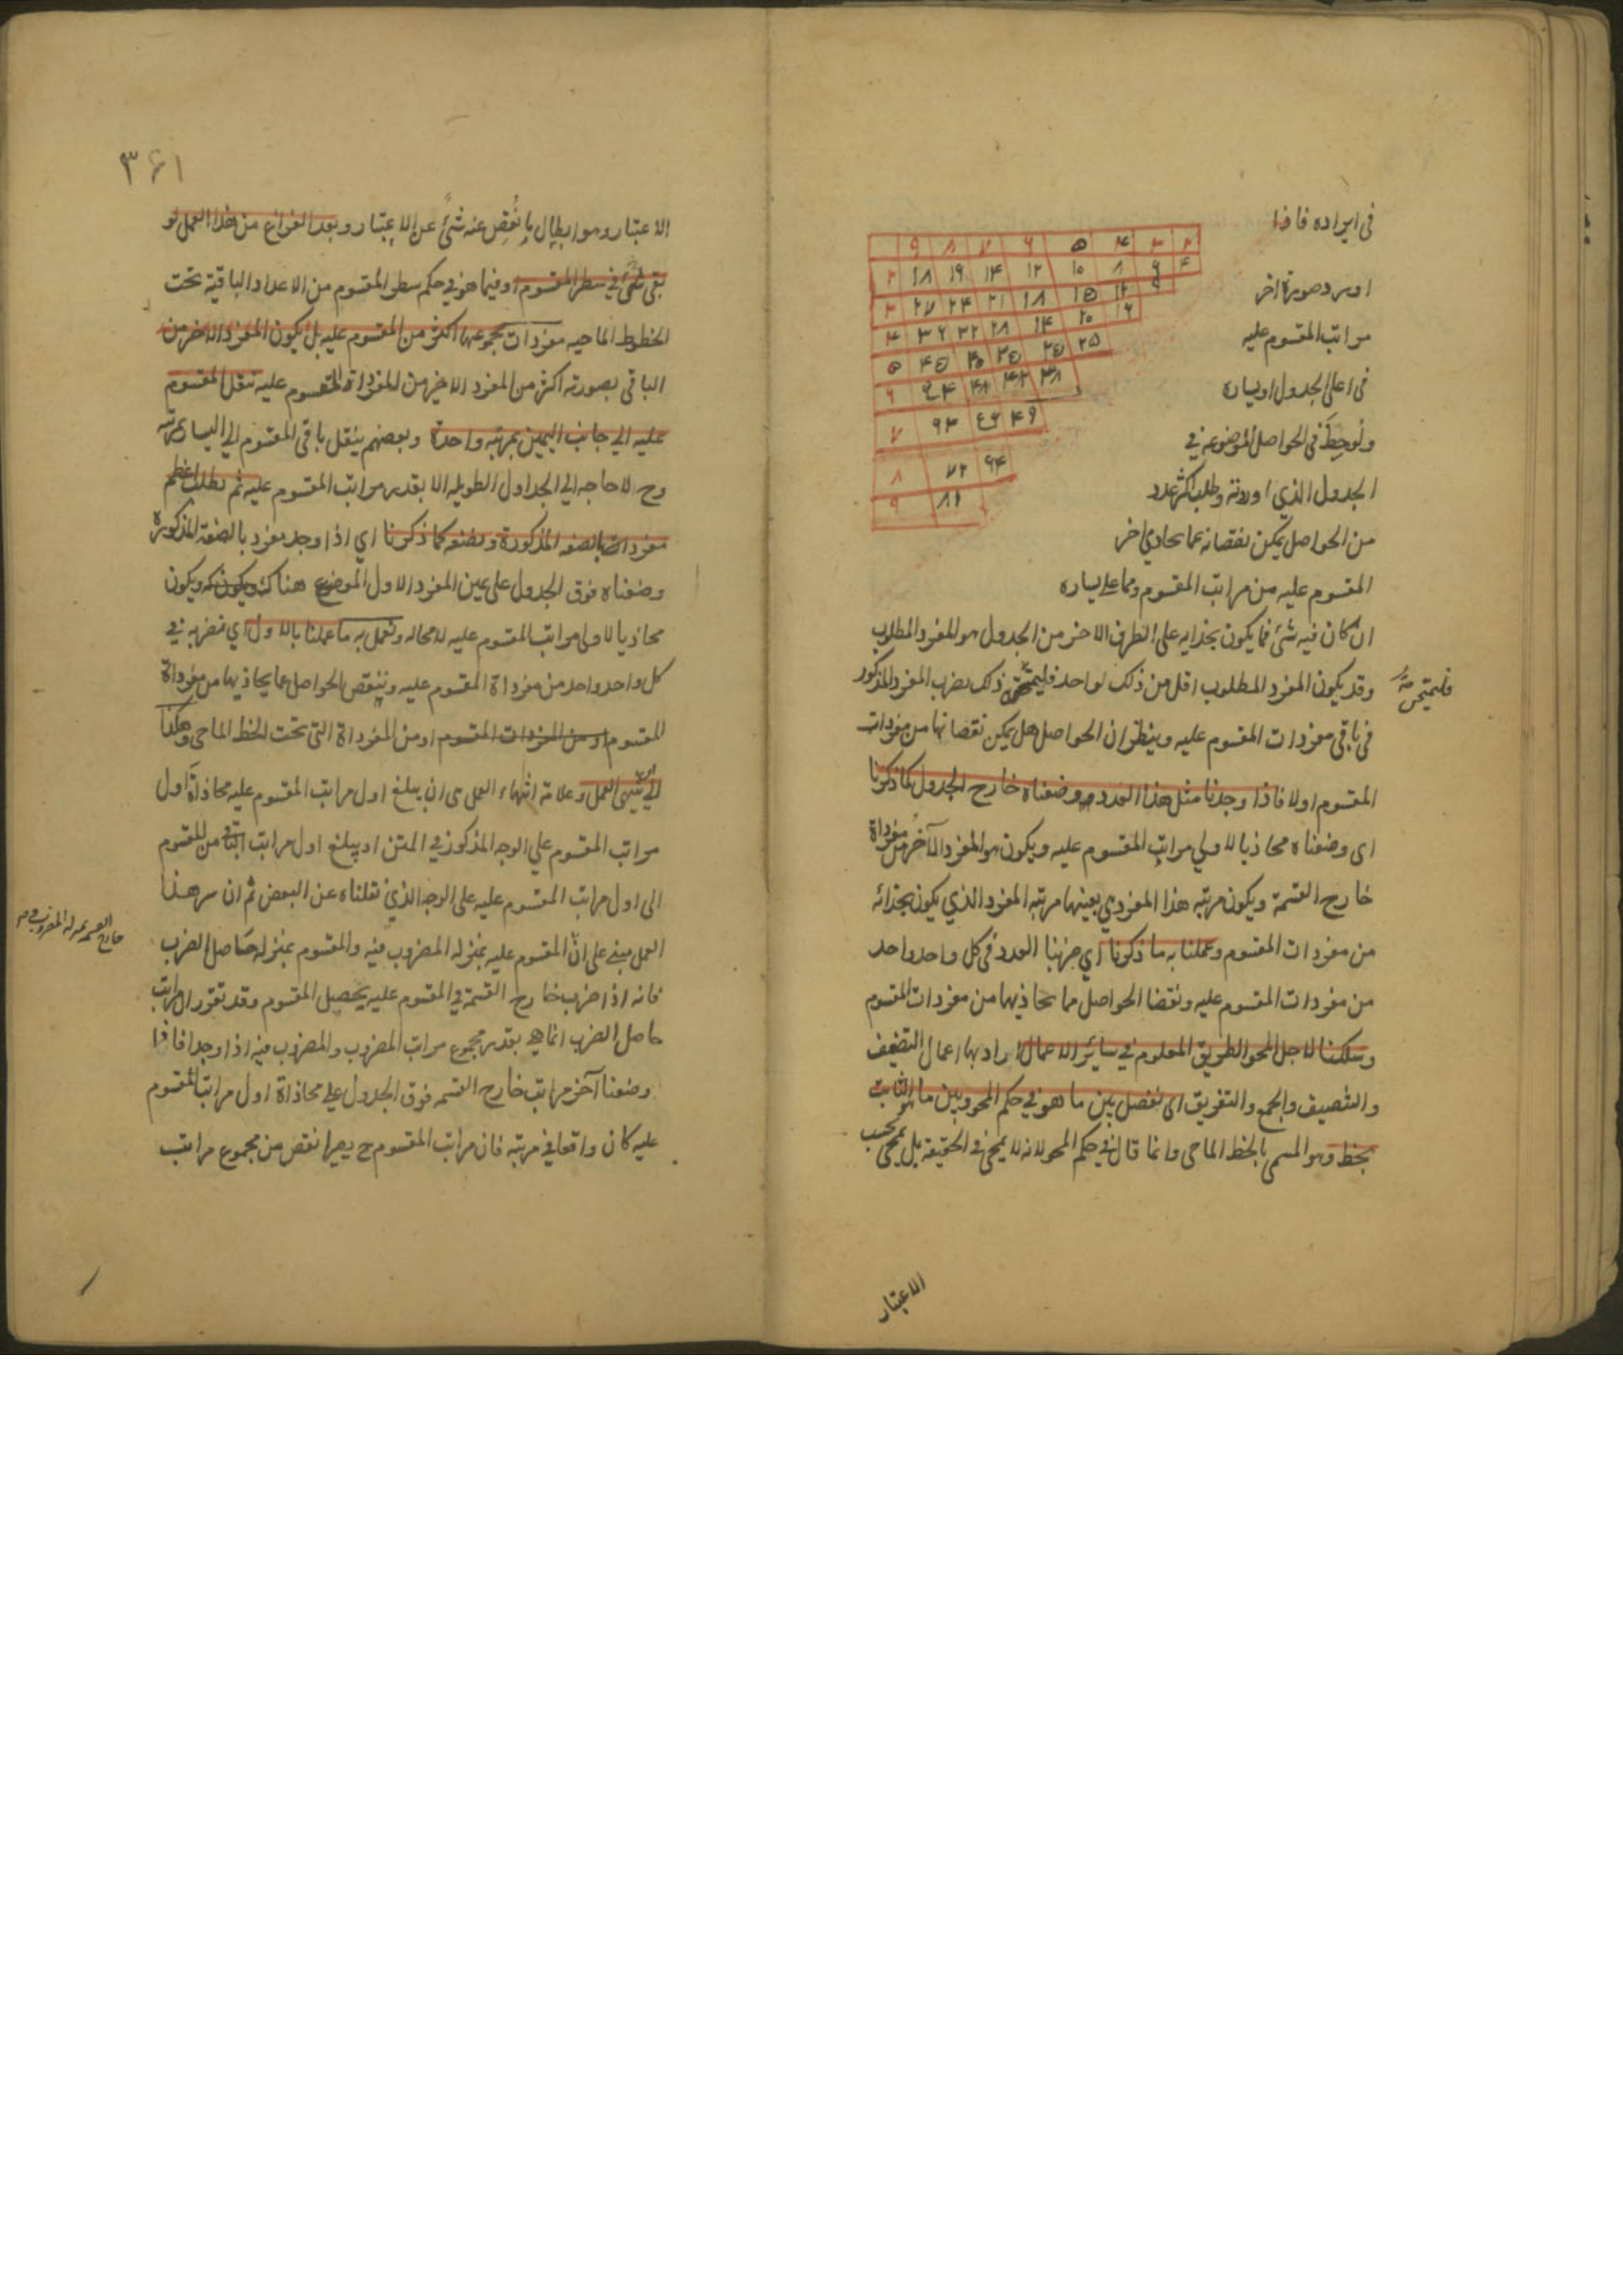 فى ايراده فاذا
٩ ٨ ٧ ٦ ٥ ۴ ٣ ٢
٢ ١٨ ١٦ ١۴ ١٢ ١٠ ٨ ٦ ۴
٣ ٢٧ ٢۴ ٢١ ١٨ ١٥ ١٢ ٩
۴ ٣٦ ٣٢ ٢٨ ٢٠ ١٦
٥ ۴٥ ۴٠ ٣٥ ٢٥
٦ ۴٨ ۴٢
٧ ٦٣ ۴٩
٨ ٧٢ ٦۴
٩ ٨١
صورة اخر
مراتب المقسوم عليه
فى اعلى الجدول او يساره
ولوحظ فى الحواصل الموضوعة في
الجدول الذي اوردته وطلب اكثر عدد
من الحواصل يمكن نقصانه مما يحاذي اخر
المقسوم عليه من مراتب المقسوم ومما على يساره
ان كان فيه شئ فما يكون بحذايه على الطرف الاخر من الجدول هو المفرد المطلوب
وقد يكون المفرد المطلوب اقل من ذلك لواحد ذلك بضرب المفرد المذكور
فى باقى مفردات المقسوم عليه وينظر ان الحواصل هل يمكن نقصانها من مفردات
المقسوم اولا فاذا وجدنا مثل هذا العدد وضعناه خارج الجدول كما ذكرنا
اى وضعناه محاذيا لاولي مراتب المقسوم عليه ويكون هو المفرد الآخر من مفرداة
خارج القسمة ويكون مرتبه هذا المفرد هي بعينها مرتبه المفرد الذي يكون بحذائه
من مفردات المقسوم وعملنا به ما ذكرنا اي ضربنا العدد فى كل واحد واحد
من مفردات المقسوم عليه ونقصنا الحواصل مما يحاذيها من مفردات المقسوم
وسلكنا لاجل المحو الطريق المعلوم في سائر الاعمال اراد بها اعمال التضعيف
والتنصيف والجمع والتفريق اى نفصل بين ما هو في حكم المحو وبين ما هو الثابت
بخط وهو المسمى بالخط الماحى وانما قال في حكم المحو لانه لا يمحى فى الحقيقة بل يمحى بحسب
الاعتبار
٣٦١
الاعتبار وهو ابطال ما نُقِص عنه شئ عن الاعتبار وبعد الفراغ من هذا العمل لو
بقى شئ في سطر المقسوم او فيما هو في حكم سطر المقسوم من الاعداد الباقية تحت
الخطوط الماحيه مفردات مجموعها اكثر من المقسوم عليه بل يكون المفرد الاخر من
الباقى بصورته اكثر من المفرد الاخير من المفرداة المقسوم عليه ننقل المقسوم
عليه الي جانب اليمين بمرتبه واحدة وبعضهم ينقل باقى المقسوم الي اليسار بمرتبه
وح لا حاجه الي الجداول الطويله الا بقدر مراتب المقسوم عليه ثم نطلب اعظم
مفردات بالصفة المذكورة ونضعه كما ذكرنا اي اذا وجد مفرد بالصفة المذكورة
وضعناه فوق الجدول على يمين المفرد الاول الموضوع هناك ويكون
محاذيا لاولى مراتب المقسوم عليه لا محاله ونعمل به ما عملنا بالاول اي نضربه في
كل واحد واحد من مفرداة المقسوم عليه وينقص الحواصل عما يحاذيها من مفرداة
المقسوم او من المفردات المقسوم او من المفرداة التى تحت الخط الماحى وهكذا
الي ان ينتهى العمل وعلامة انتهاء العمل هى ان يبلغ اول مراتب المقسوم عليه محاذاة اول
مراتب المقسوم علي الوجه المذكور في المتن او يبلغ اول مراتب الباقى من المقسوم
الى اول مراتب المقسوم عليه على الوجه الذي نقلناه عن البعض ثم ان سر هذا
العمل مبنى على انّ المقسوم عليه بمنزله المضروب فيه والمقسوم بمنزله حاصل الضرب
خارج القسمه بمنزله المضروب
فانه اذا ضرب خارج القسمة في المقسوم عليه يحصل المقسوم وقد تقرر ان مراتب
حاصل الضرب انما هى بقدر مجموع مراتب المضروب والمضروب فيه اذا وجدا فاذا
وضعنا آخر مراتب خارج القسمه فوق الجدول علي محاذاة اول مراتب المقسوم
عليه كان واقعا في مرتبه فان مراتب المقسوم ح يصير انقص من مجموع مراتب